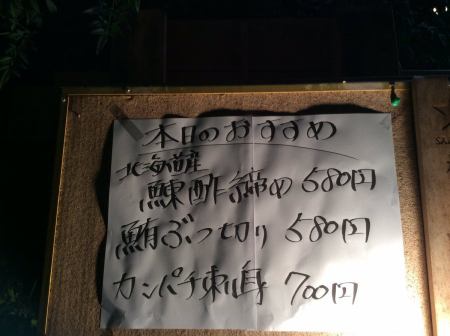 本日のおすすめ
北海道産
鰊酢締め 580円
鮪ぶつ切り 580円
カンパチ刺身 700円